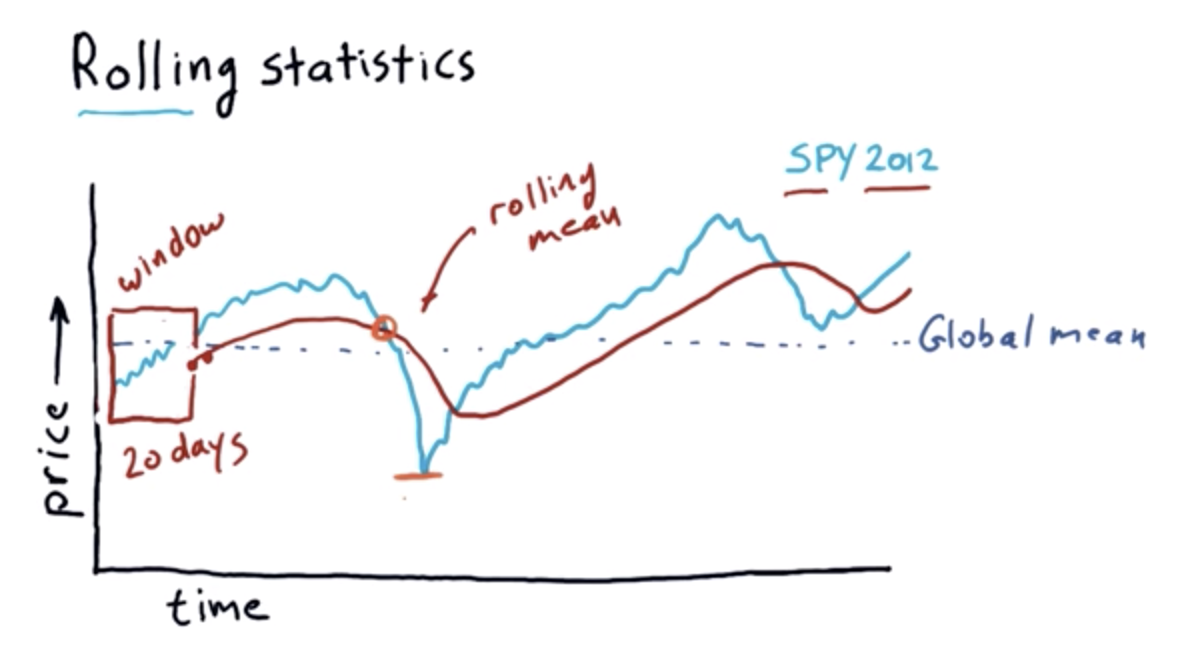 Rolling statistics
SPY 2012
rolling
mean
window
Global mean
20 days
price
time